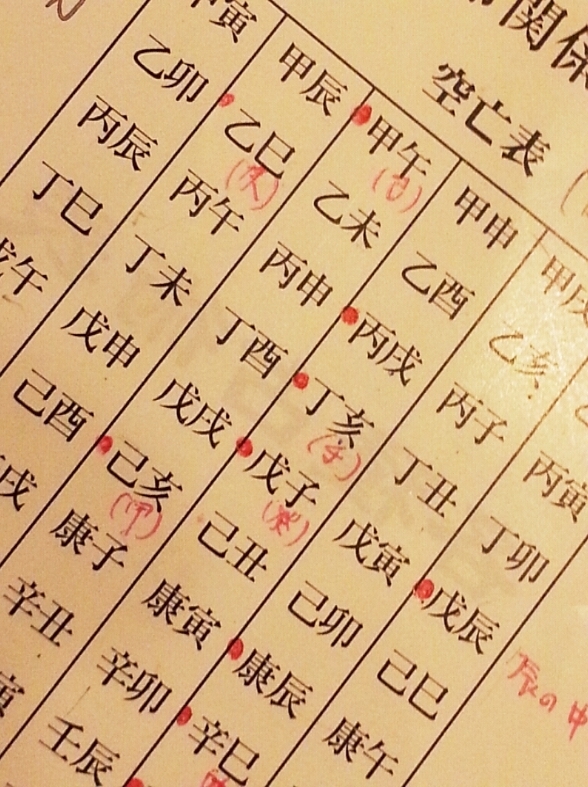 関係
空亡表
丙寅
丁卯
戊辰
己巳
康午
辰の中
甲戌
乙亥
丙子
丁丑
戊寅
己卯
康辰
辛巳
甲申
乙酉
丙戌
丁亥
戊子
己丑
康寅
辛卯
壬辰
甲午
乙未
丙申
丁酉
戊戌
己亥
(甲)
康子
辛丑
寅
甲辰
乙巳
丙午
丁未
戊申
己酉
戌
甲寅
乙卯
丙辰
丁巳
戊午